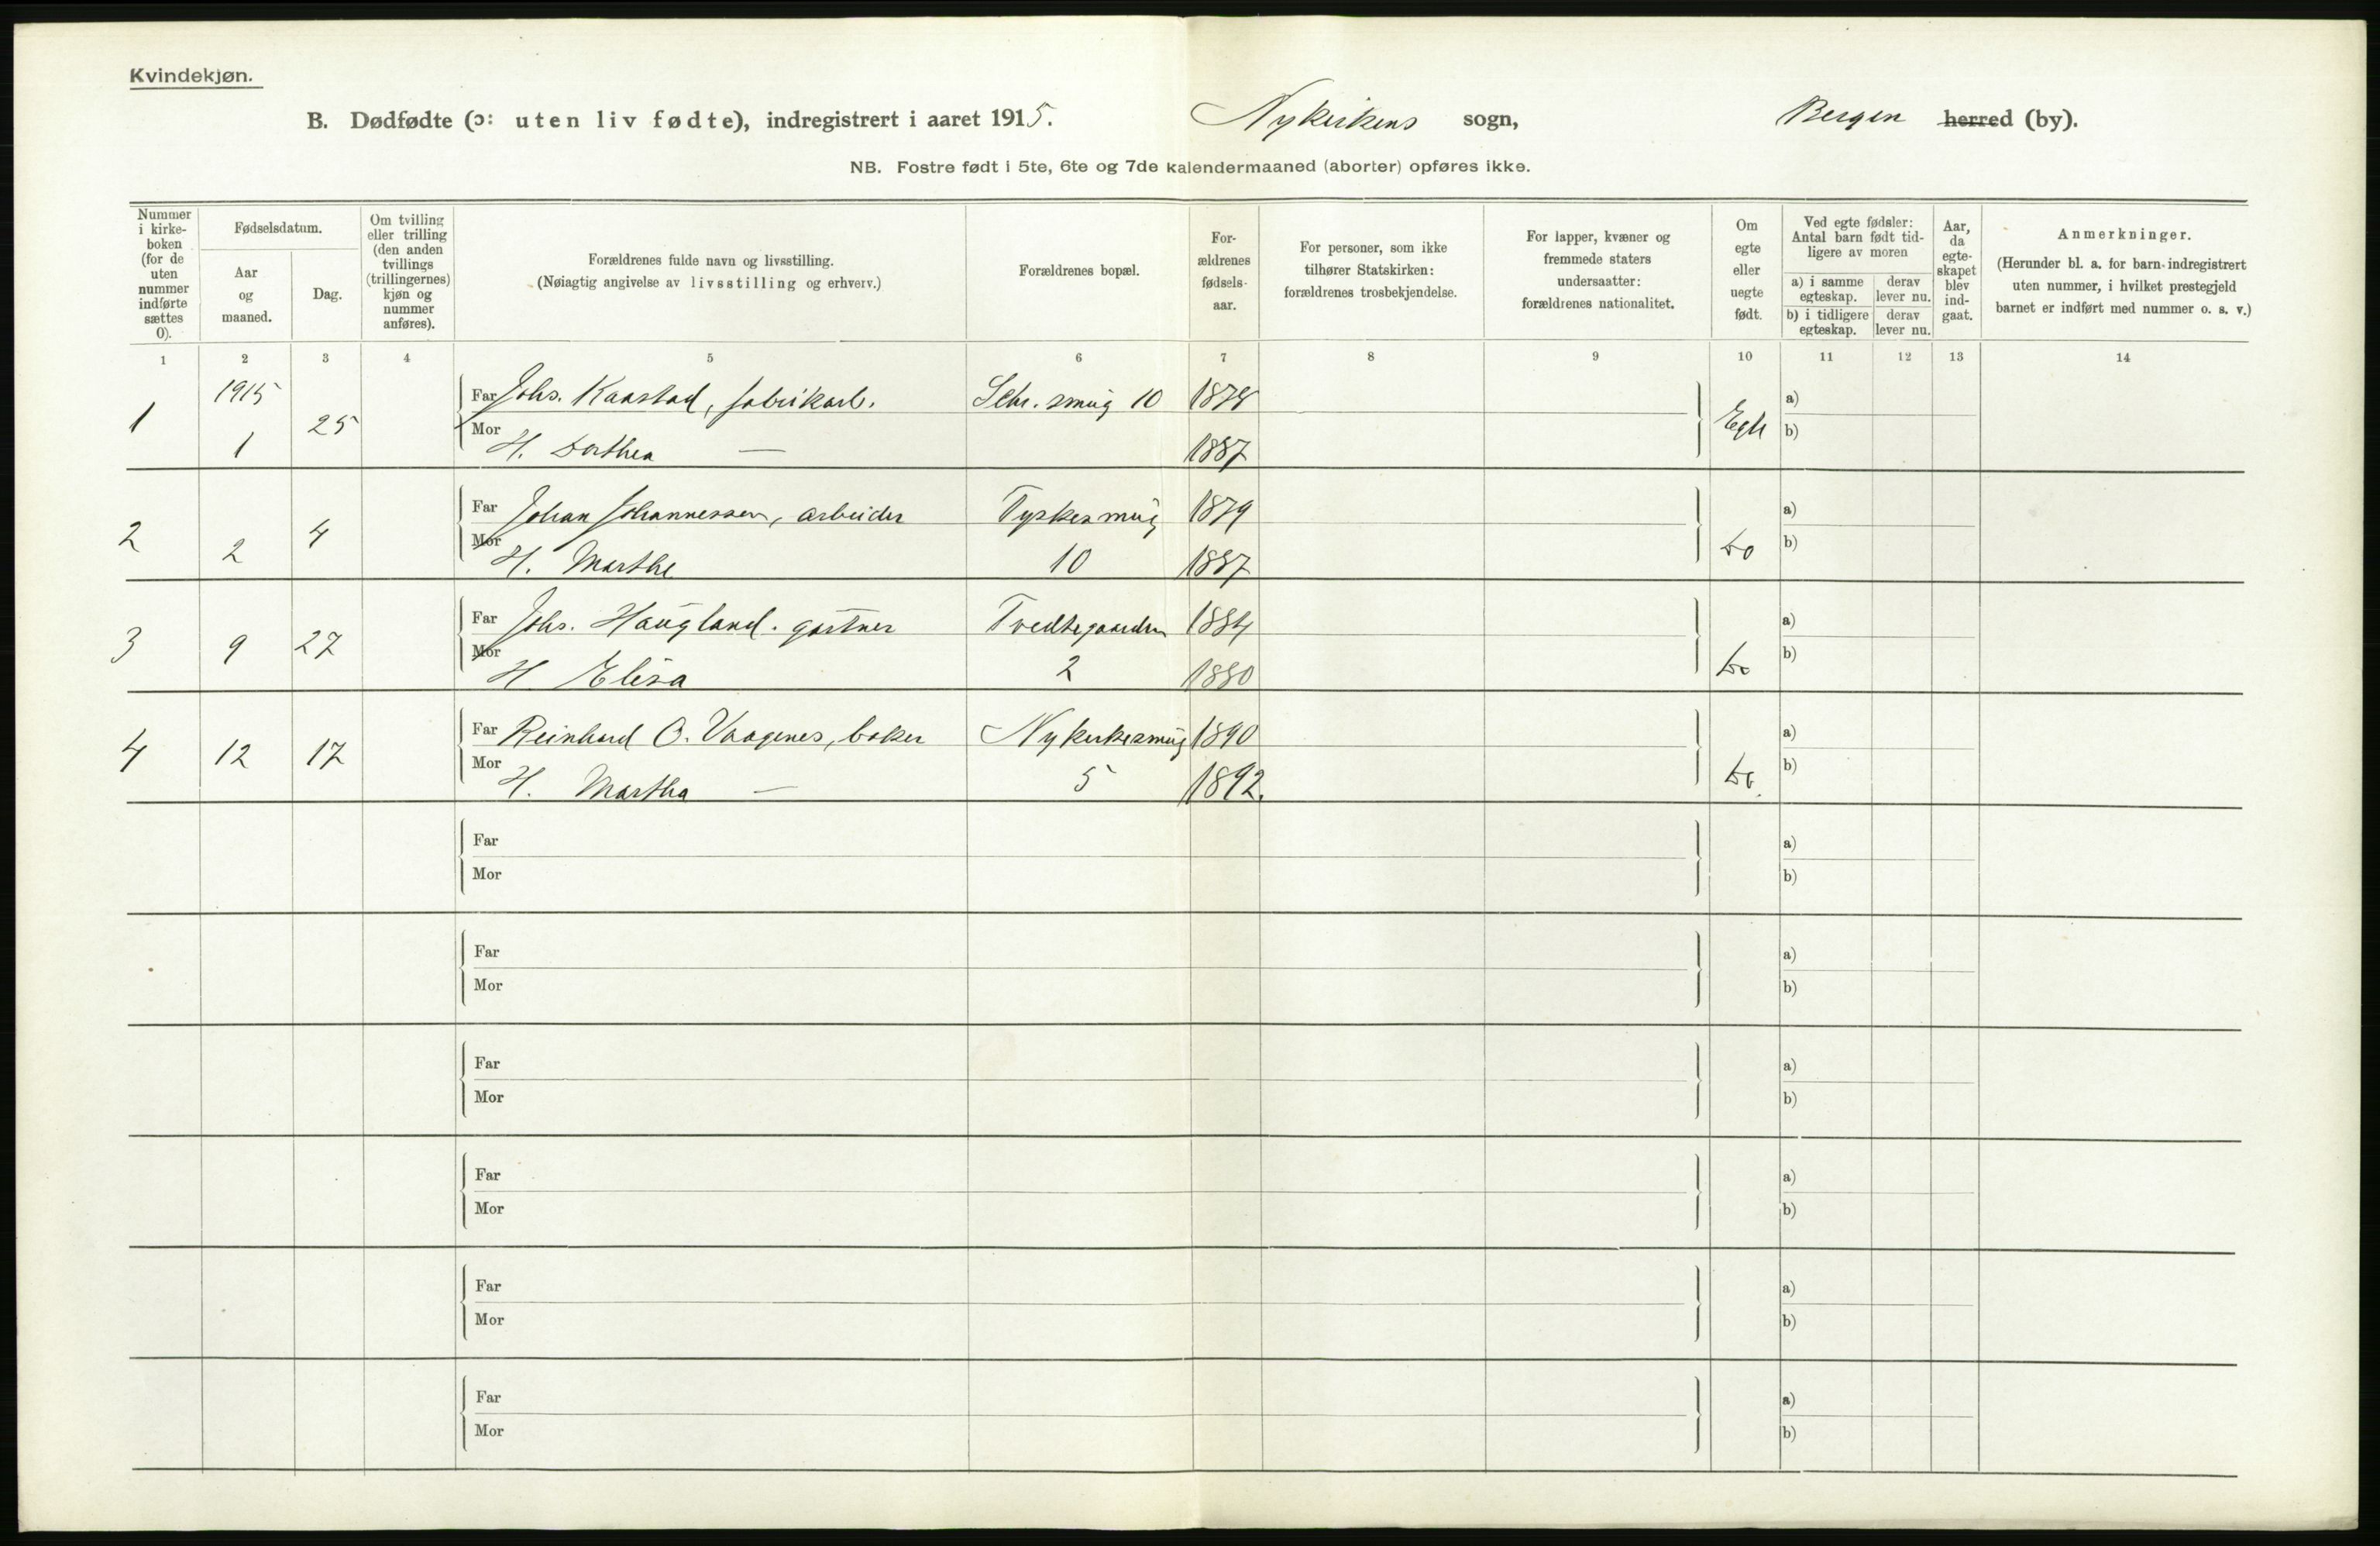 Kvindekjøn.
B. Dødfødte (ɔ: uten liv fødte), indregistrert i aaret 1915. Nykirkens sogn, Bergen herred (by).
NB. Fostre født i 5te, 6te og 7de kalendermaaned (aborter) opføres ikke.
Nummer i kirke-boken (for de uten nummer indførte sættes 0).
Fødselsdatum.
Aar og maaned.
Dag.
Om tvilling eller trilling (den anden tvillings (trillingernes) kjøn og nummer anføres).
Forældrenes fulde navn og livsstilling.
(Nøiagtig angivelse av livsstilling og erhverv.)
Forældrenes bopæl.
For-ældrenes fødsels-aar.
For personer, som ikke tilhører Statskirken: forældrenes trosbekjendelse.
For lapper, kvæner og fremmede staters undersaatter: forældrenes nationalitet.
Om egte eller uegte født.
Ved egte fødsler: Antal barn født tid-ligere av moren
a) i samme egteskap. derav lever nu.
b) i tidligere egteskap. derav lever nu.
Aar, da egte-skapet blev ind-gaat.
Anmerkninger.
(Herunder bl. a. for barn indregistrert uten nummer, i hvilket prestegjeld barnet er indført med nummer o. s. v.)
1 2 3 4 5 6 7 8 9 10 11 12 13 14
1915
1 1 25 Far Johs. Kaastad, fabrikarb. Schr. smug 10 1878 Egte a)
Mor H. Dorthea — 1887 b)
2 2 4 Far Johan Johannessen, arbeider Tyskesmug 1879 do a)
Mor H. Marthe 10 1887 b)
3 9 27 Far Johs. Haugland. gartner Tvedtegaarden 1884 do a)
Mor H Elisa 2 1880 b)
4 12 17 Far Reinhard O. Vaagenes, baker Nykirkesmug 1890 do. a)
Mor H. Martha — 5 1892. b)
Far a)
Mor b)
Far a)
Mor b)
Far a)
Mor b)
Far a)
Mor b)
Far a)
Mor b)
Far a)
Mor b)